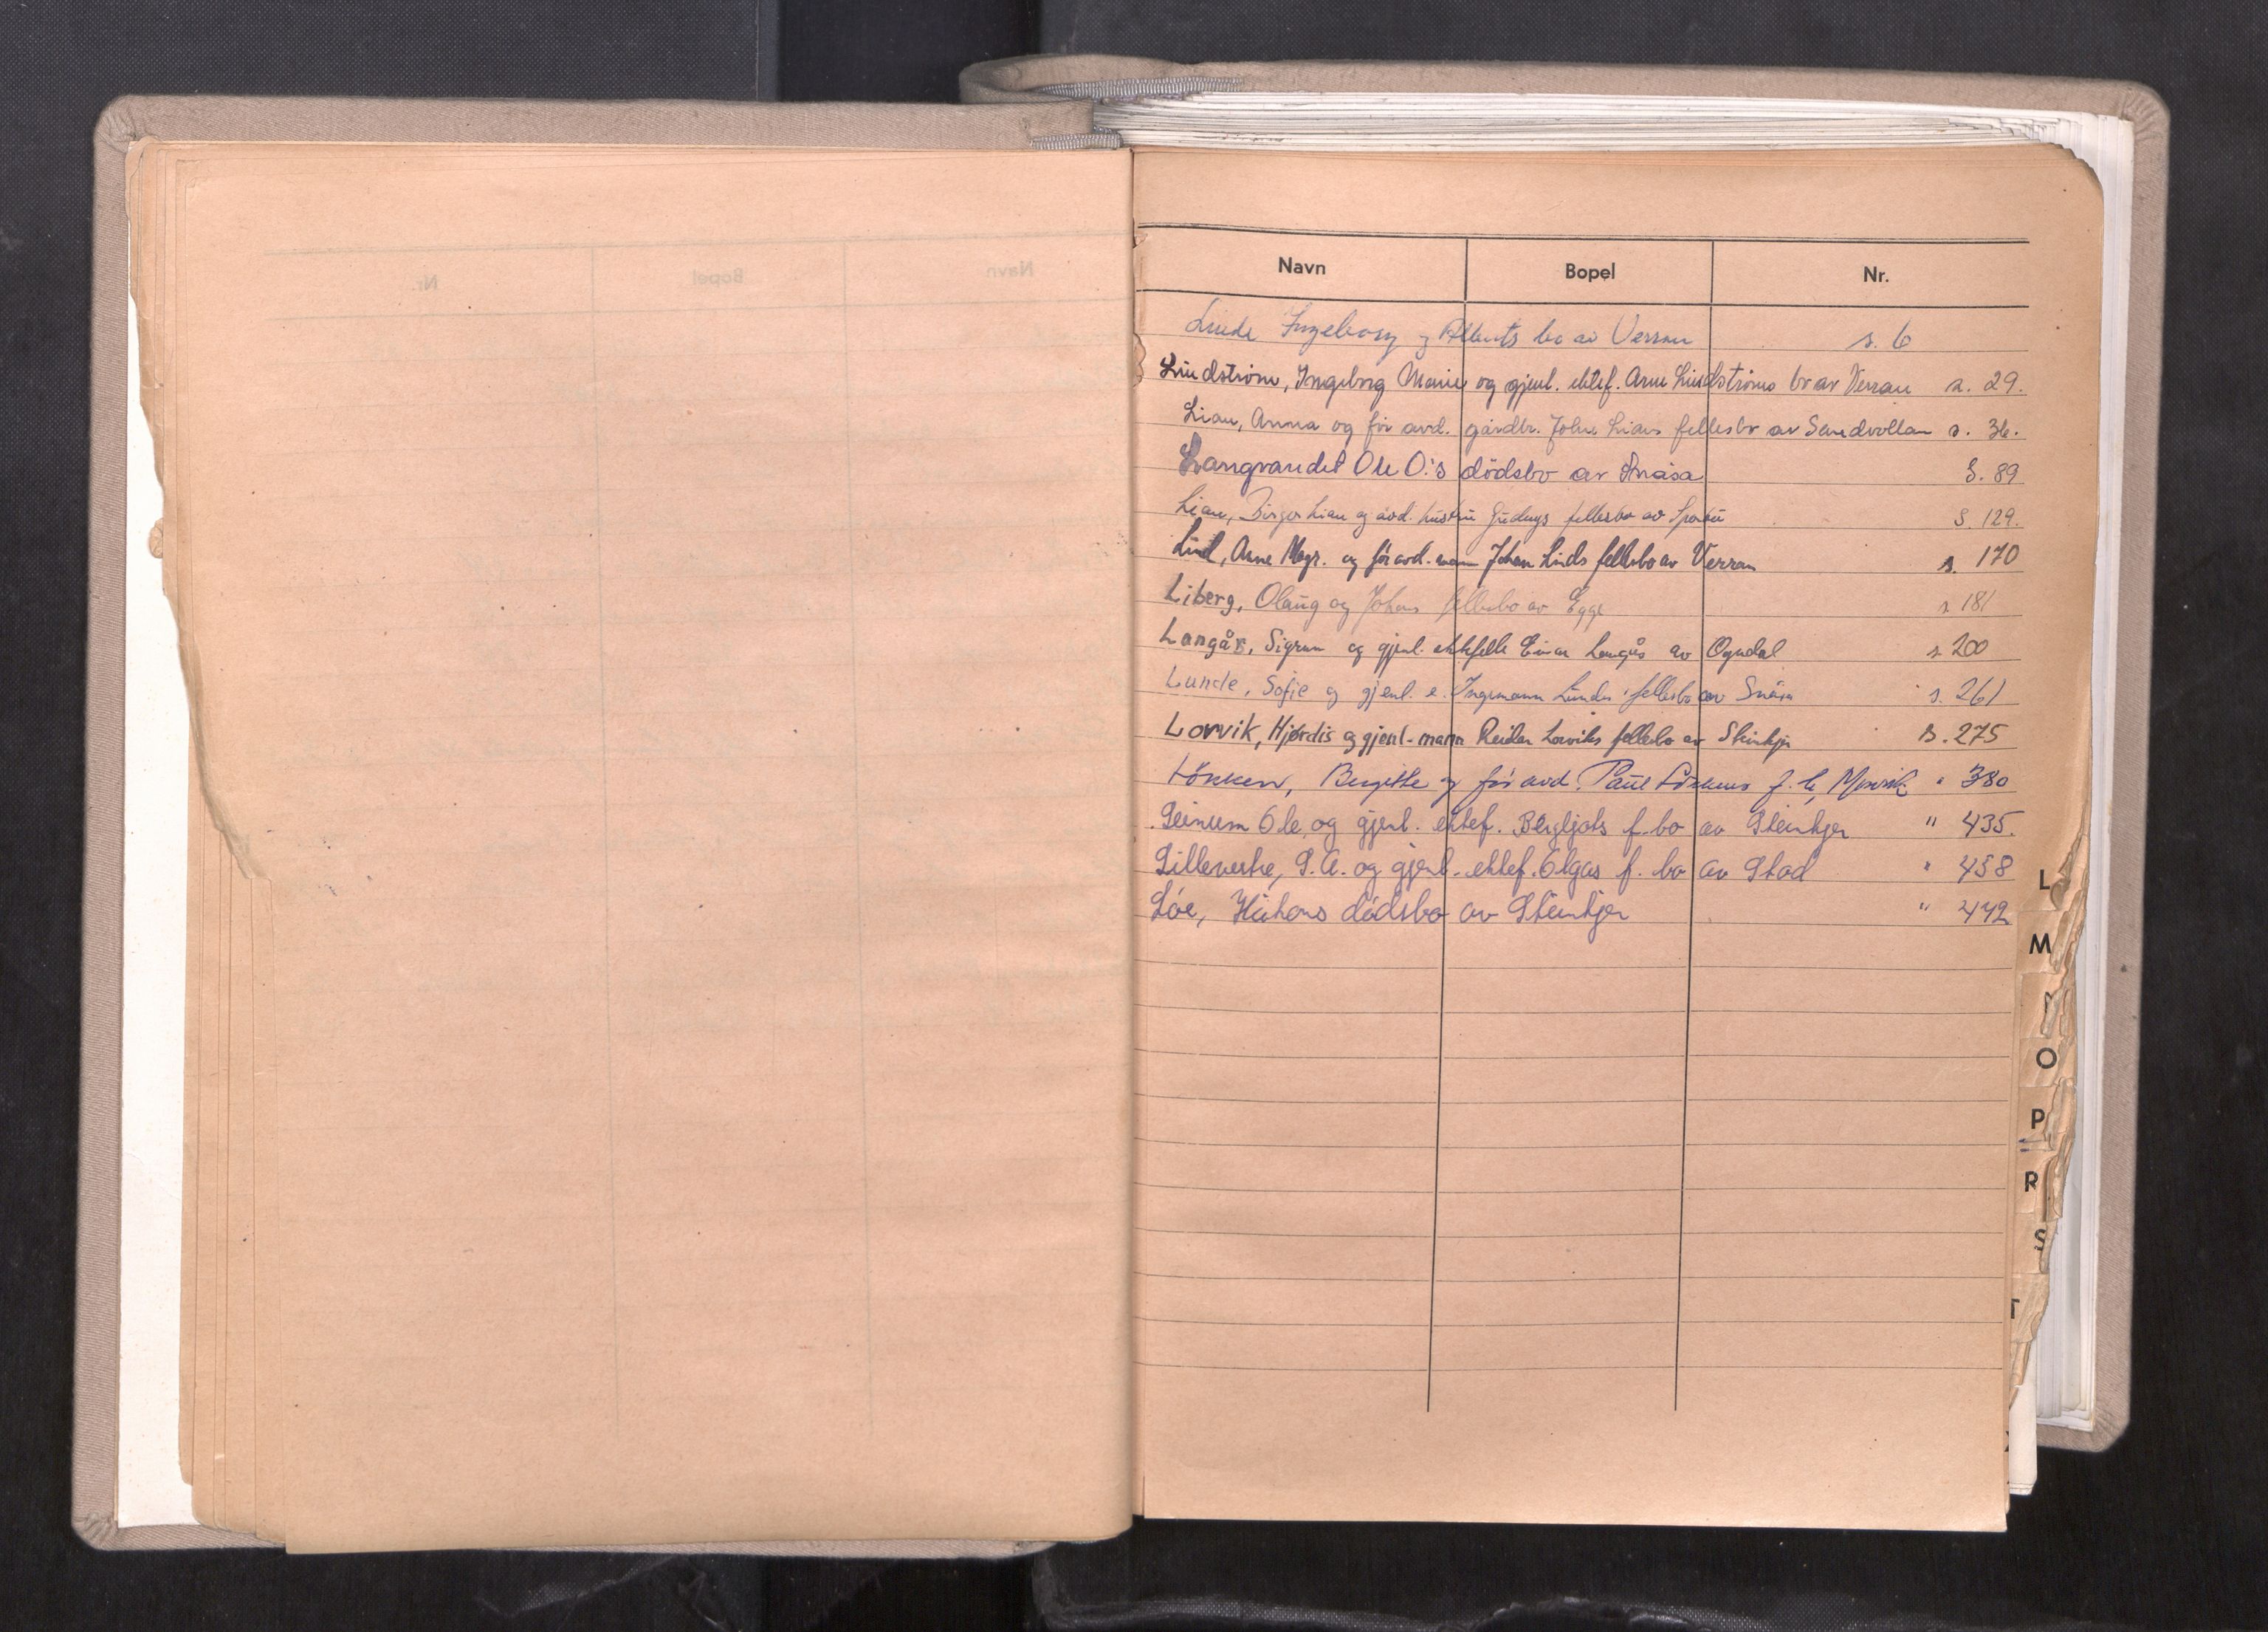 Navn Bopel Nr.
Linde Ingeborg og Alberts bo av Verran s. 6
Lindström, Ingeborg Marie og gjenl. ektef. Arne Lindströms bo av Verran s. 29.
Lian, Anna og för avd. gårdbr. Johs Lians fellesbo av Sandvollan s. 36.
Langvandet Ole O.'s dödsbo av Snåsa S. 89
Lian, Birger Lian og avd. hustru Gudnys fellesbo av Sparbu S. 129.
Lind, Anne Magr. og för avd. mann Johan Linds fellesbo av Verran s. 170
Liberg, Olaug og Johans fellesbo av Egge s 181
Langås, Sigrun og gjenl. ektefelle Einar Langås av Ogndal s 200
Lunde, Sofie og gjenl. e. Ingemann Lundes fellesbo av Snåsa s. 261
Lorvik, Hjördis og gjenl. mann Reidar Lorviks fellesbo av Steinkjer s. 275
Lökken, Birgitte og för avd. Paul Lökkens f. b. " 380
Leinum Ole og gjenl. ektef. Bergljots f. bo av Steinkjer " 435.
Lillevestre, P. A. og gjenl. ektef. Olgas f. bo av Stod " 458
Löe, Håkons dödsbo av Steinkjer " 472
L
M
N
O
P
R
S
T